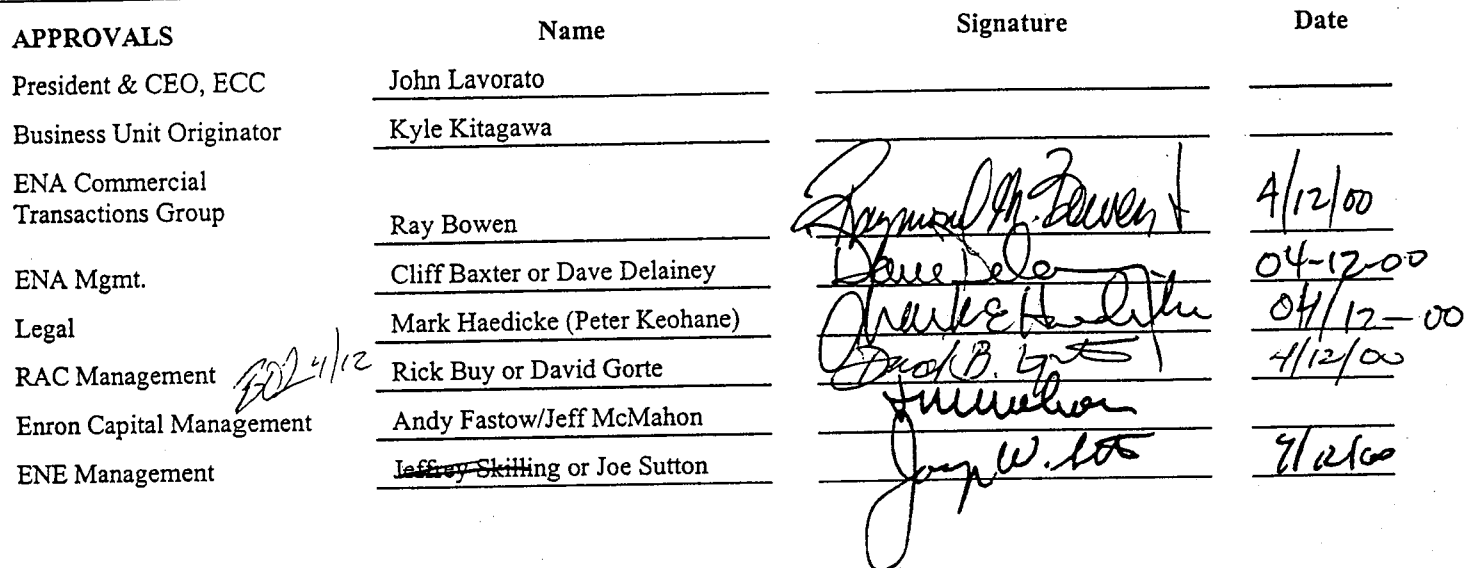 APPROVALS Name Signature Date
President & CEO, ECC John Lavorato
Business Unit Originator Kyle Kitagawa
ENA Commercial
Transactions Group Ray Bowen Raymond M. Bowen Jr 4/12/00
ENA Mgmt. Cliff Baxter or Dave Delainey Dave Delainey 04-12-00
Legal Mark Haedicke (Peter Keohane) Mark E Haedicke 04/12-00
RAC Management 4/12 Rick Buy or David Gorte David B. Gorte 4/12/00
Enron Capital Management Andy Fastow/Jeff McMahon McMahon
ENE Management Jeffrey Skilling or Joe Sutton W. 4/12/00